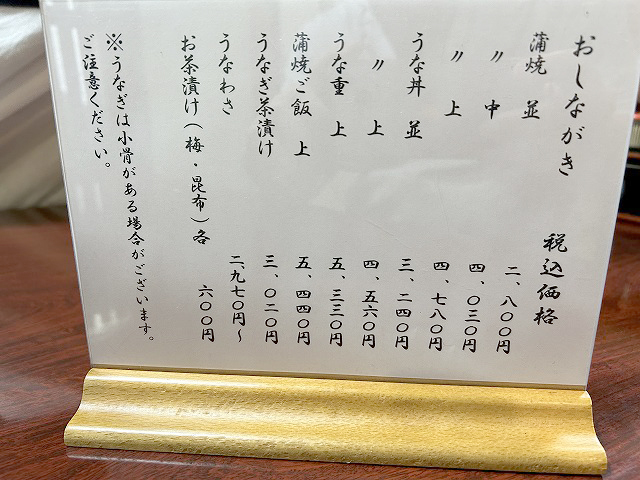 おしながき 税込価格
蒲焼 並 二、八〇〇円
〃 中 四、〇三〇円
〃 上 四、七八〇円
うな丼 並 三、二四〇円
〃 上 四、五六〇円
うな重 上 五、三三〇円
蒲焼ご飯 上 五、四四〇円
うなぎ茶漬け 三、〇二〇円
うなわさ 二、九七〇円～
お茶漬け（梅・昆布）各 六〇〇円
※うなぎは小骨がある場合がございます。
ご注意ください。